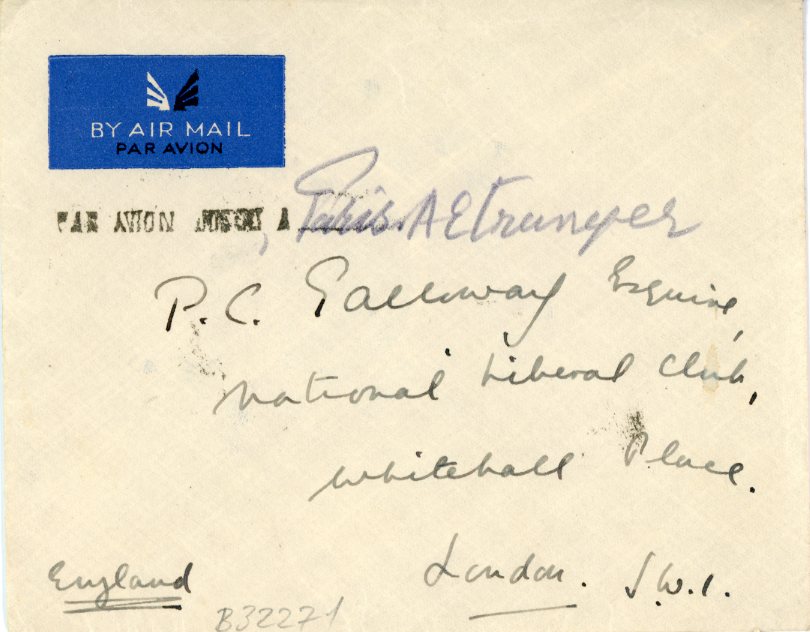 BY AIR MAIL
PAR AVION
PAR AVION JUSQU A Paris. A Etranger
P. C. Galloway Esquire,
National Liberal Club,
Whitehall Place.
London. S.W.1.
England
B32271